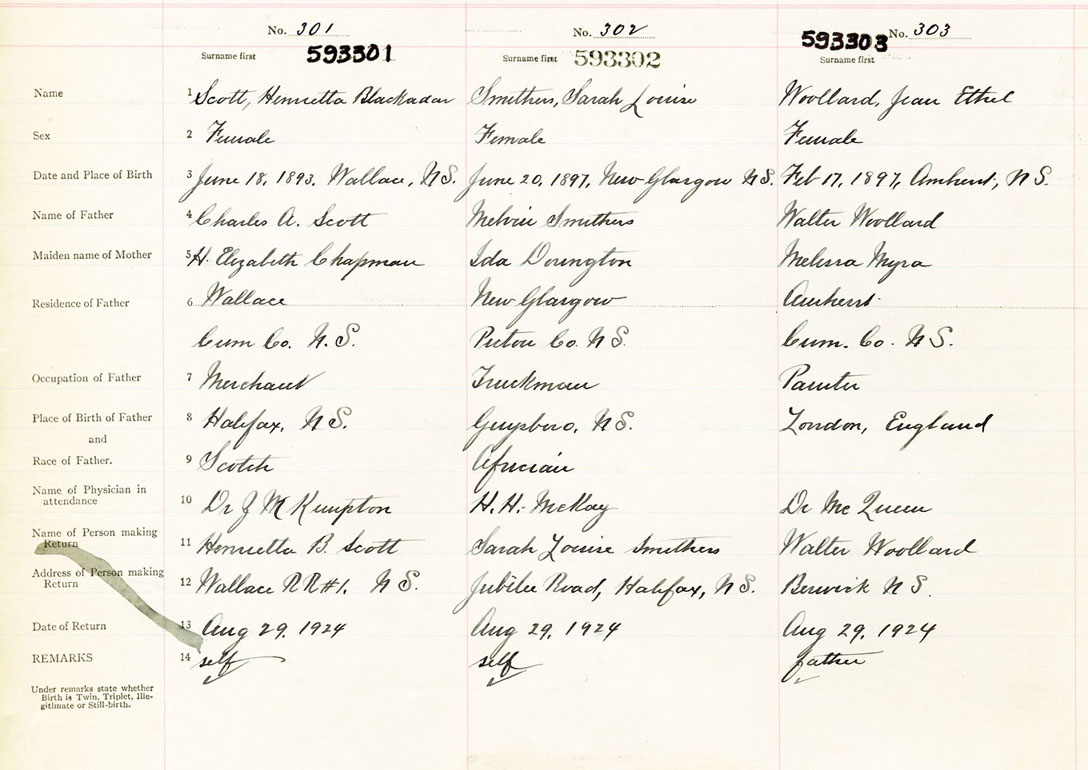 No. 301 No. 302 No. 303
Surname first 593301 Surname first 593302 593303 Surname first
Name 1 Scott, Henrietta Blackadar Smithers, Sarah Louise Woollard, Jean Ethel
Sex 2 Female Female Female
Date and Place of Birth 3 June 18, 1893. Wallace, N.S. June 20, 1897, New Glasgow N.S. Feb 17, 1897, Amherst, N.S.
Name of Father 4 Charles A. Scott Melvin Smithers Walter Woollard
Maiden name of Mother 5 H. Elizabeth Chapman Ida Dorington Melissa Myra
Residence of Father 6 Wallace New Glasgow Amherst
Cum Co. N.S. Pictou Co. N.S. Cum. Co. N.S.
Occupation of Father 7 Merchant Truckman Painter
Place of Birth of Father 8 Halifax, N.S. Guysboro, N.S. London, England
and
Race of Father. 9 Scotch African
Name of Physician in
attendance 10 Dr J M Kempton H. H. McKay Dr McQueen
Name of Person making
Return 11 Henrietta B. Scott Sarah Louise Smithers Walter Woollard
Address of Person making
Return 12 Wallace RR#1. N.S. Jubilee Road, Halifax, N.S. Berwick N.S.
Date of Return 13 Aug 29, 1924 Aug 29, 1924 Aug 29, 1924
REMARKS 14 self self father
Under remarks state whether
Birth is Twin, Triplet, Ille-
gitimate or Still-birth.